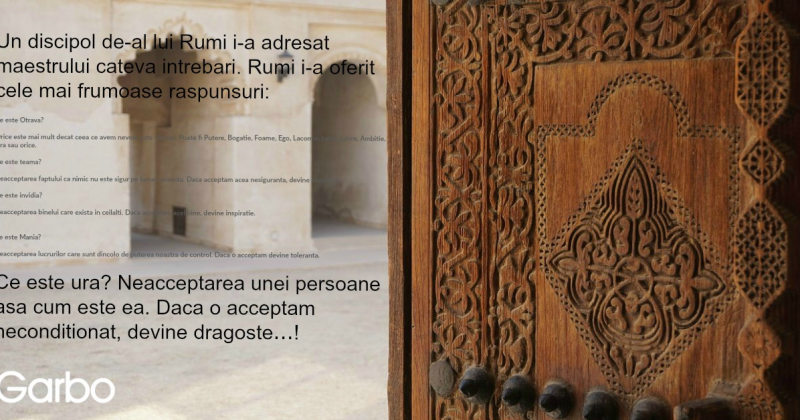 Un discipol de-al lui Rumi i-a adresat
maestrului cateva intrebari. Rumi i-a oferit
cele mai frumoase raspunsuri:
e este Otrava?
rice este mai mult decat ceea ce avem Poate fi Putere, Bogatie, Foame, Ego, Ambitie,
ra sau orice.
e este teama?
eacceptarea faptului ca nimic nu este sigur Daca acceptam acea nesiguranta, devine
e este invidia?
eacceptarea binelui care exista in ceilalti. devine inspiratie.
e este Mania?
eacceptarea lucrurilor care sunt dincolo de puterea noastra de control. Daca o acceptam devine toleranta.
Ce este ura? Neacceptarea unei persoane
asa cum este ea. Daca o acceptam
neconditionat, devine dragoste...!
Garbo